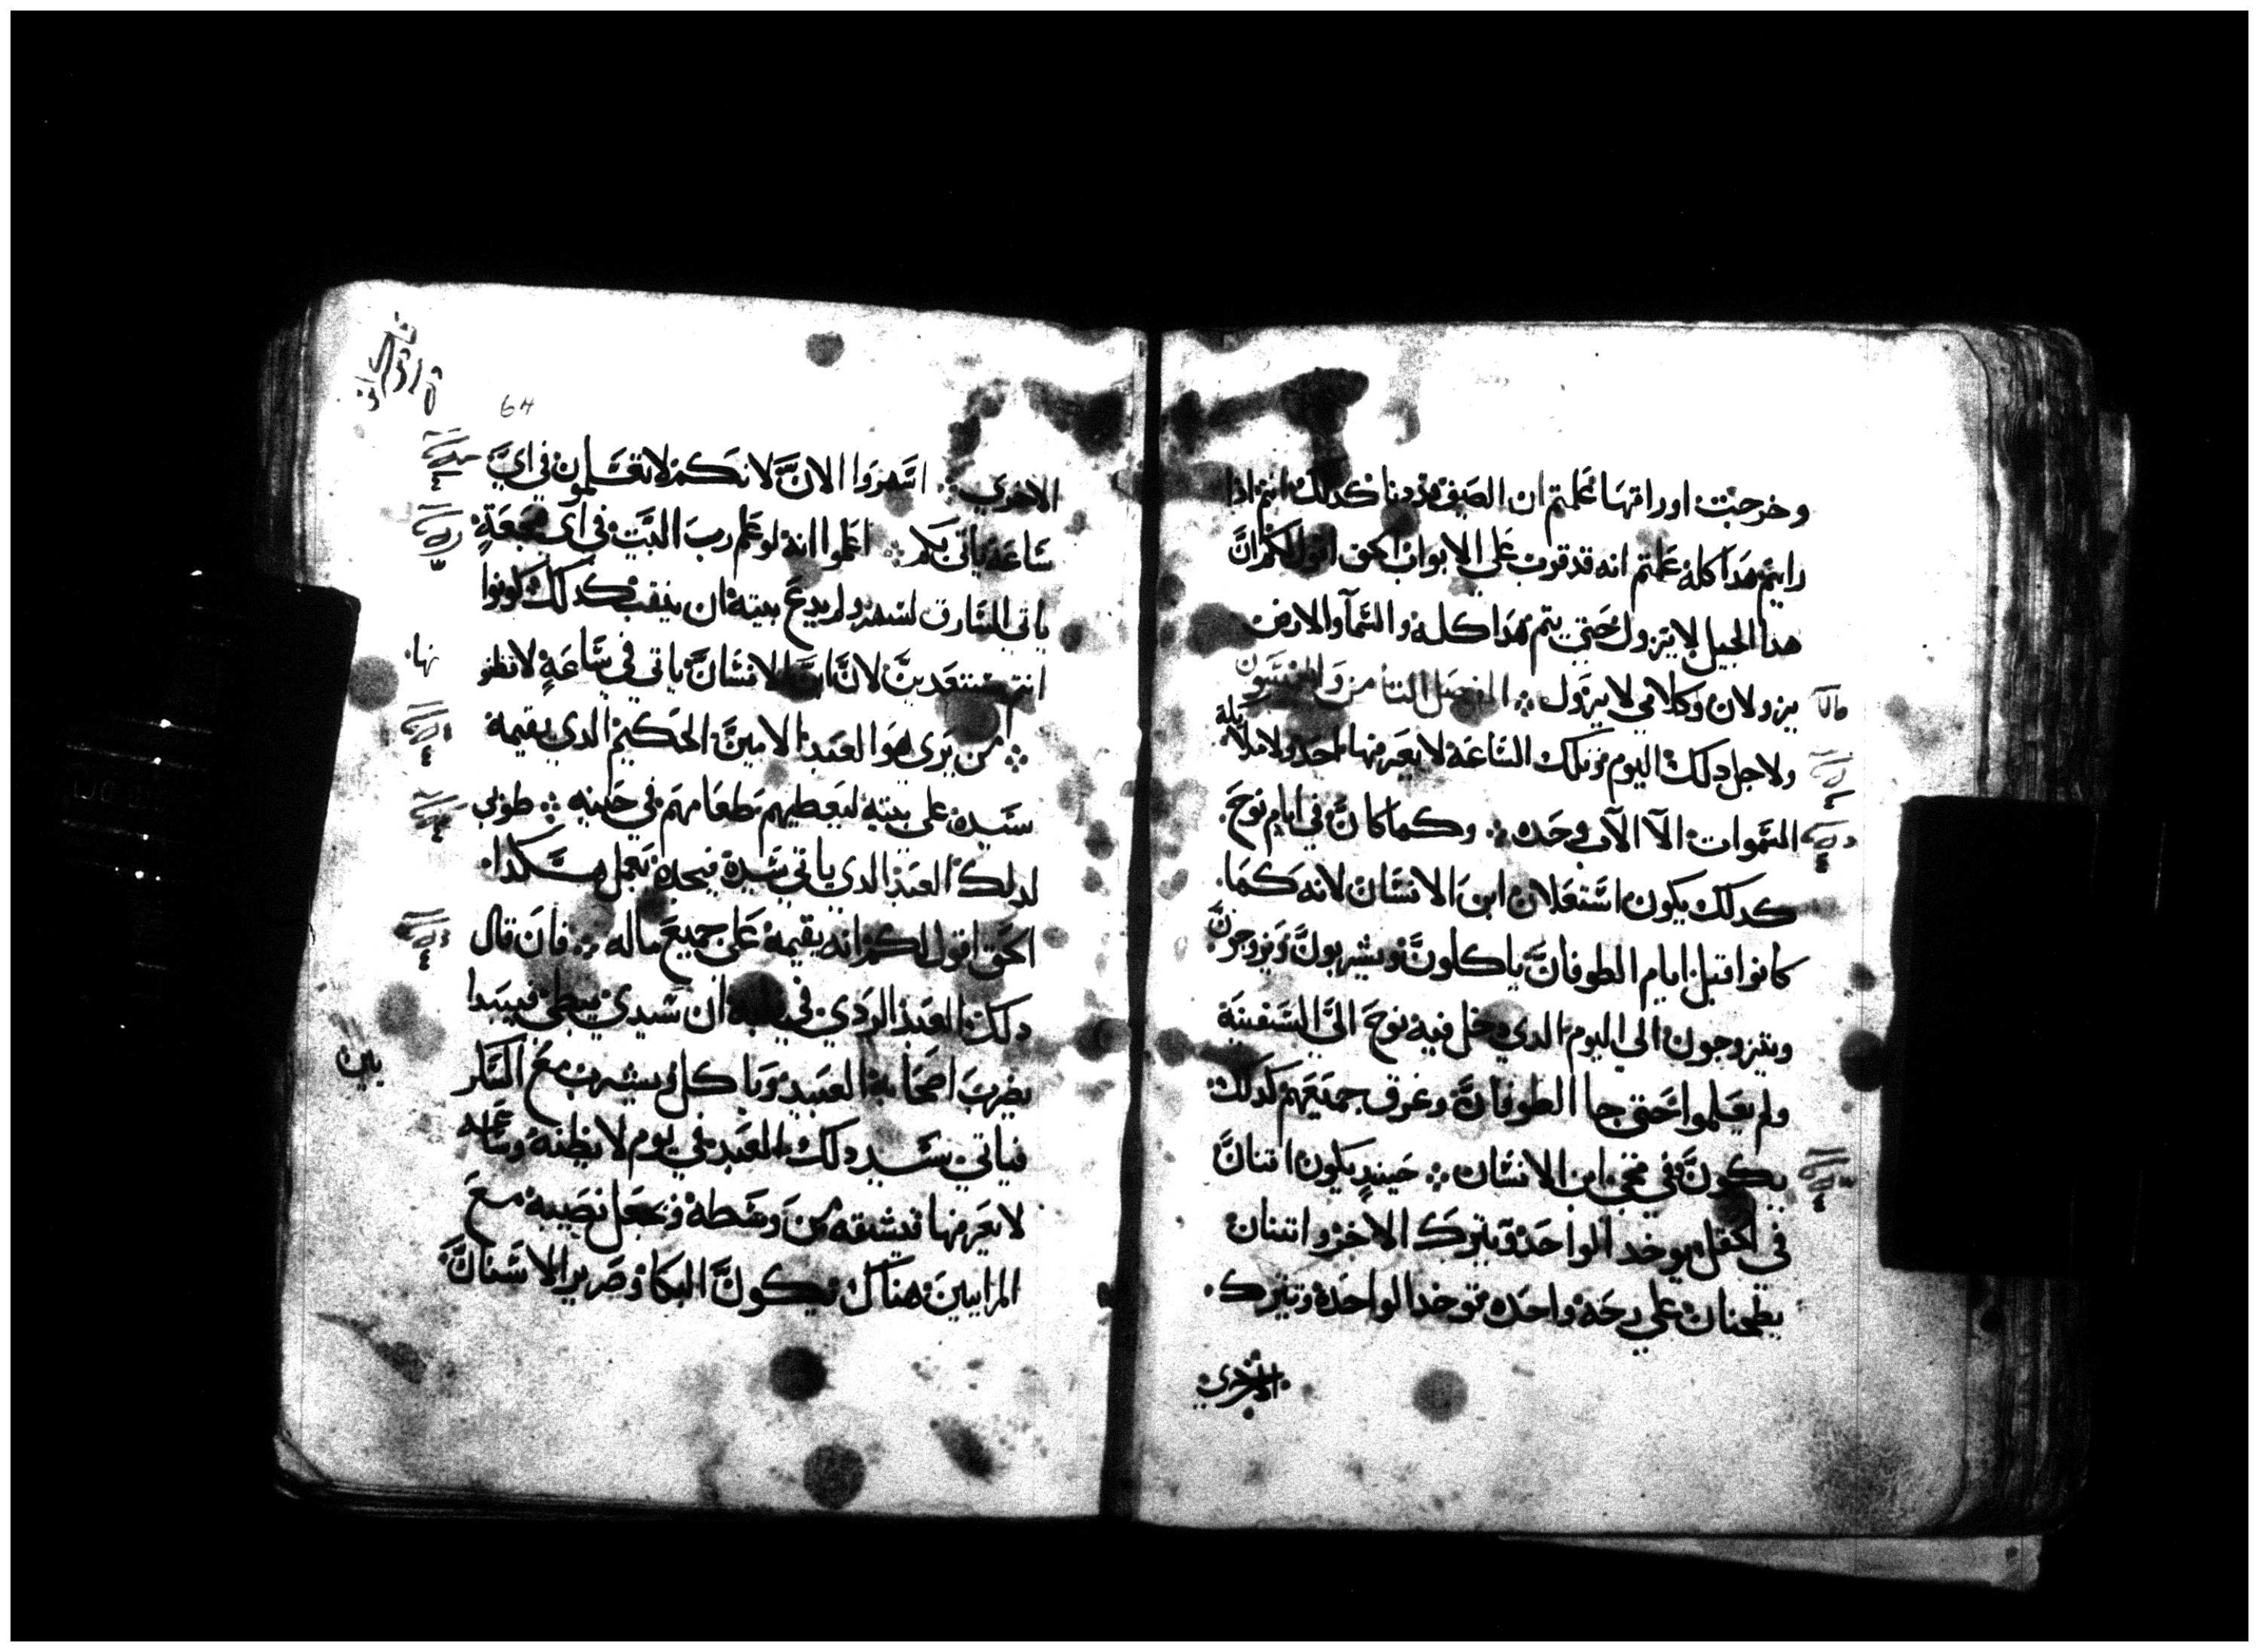 وخرجت اوراقها علمتم ان الصيف قد دنا كدلك انتم ادا
رايتم هدا كله علمتم انه قد قرب علي الابواب الحق اقول لكم ان
هدا الجيل لا يزول حتي يتم هدا كله والسما والارض
يزولان وكلامي لا يزول ۞ الفصل الثامن والخمسون
ولاجل دلك اليوم وتلك الساعه لا يعرفها احد ولا ملايكة
السموات الا الاب وحده ۞ وكما كان في ايام نوح
كدلك يكون استعلان ابن الانسان لانه كما
كانوا قبل ايام الطوفان ياكلون ويشربون ويزوجون
ويتزوجون الي اليوم الدي دخل فيه نوح الي السفينة
ولم يعلموا حتي جا الطوفان وغرق جميعهم كدلك
يكون في مجي ابن الانسان ۞ حينيد يكون اتنان
في الحقل يوخد الواحد ويترك الاخر واتنتان
يطحنان علي رحه واحده توخد الواحدة وتترك
الاخري
64
الاخري ۞ اسهروا الان لانكم لا تعلمون في اي
ساعة ياتي ربكم ۞ اعلموا انه لو علم رب البيت في اي هجعة
ياتي السارق لسهر ولم يدع بيته ان ينقب كدلك كونوا
انتم مستعدين لان ابن الانسان ياتي في ساعة لا تظنو
نها
۞ من يري هو العبد الامين الحكيم الدي يقيمه
سيده علي بيته ليعطيهم طعامهم في حينه ۞ طوبي
لدلك العبد الدي ياتي سيده فيجده يعمل هكدا
الحق اقول لكم انه يقيمه علي جميع ماله ۞ فان قال
دلك العبد الردي في قلبه ان سيدي يبطي فيبدا
يضرب اصحابه العبيد وياكل ويشرب مع السكار
فياتي سيد دلك العبد في يوم لا يظنه وساعه
لا يعرفها فيشقه من وسطه ويجعل نصيبه مع
المراييين هناك يكون البكا وصرير الاسنان